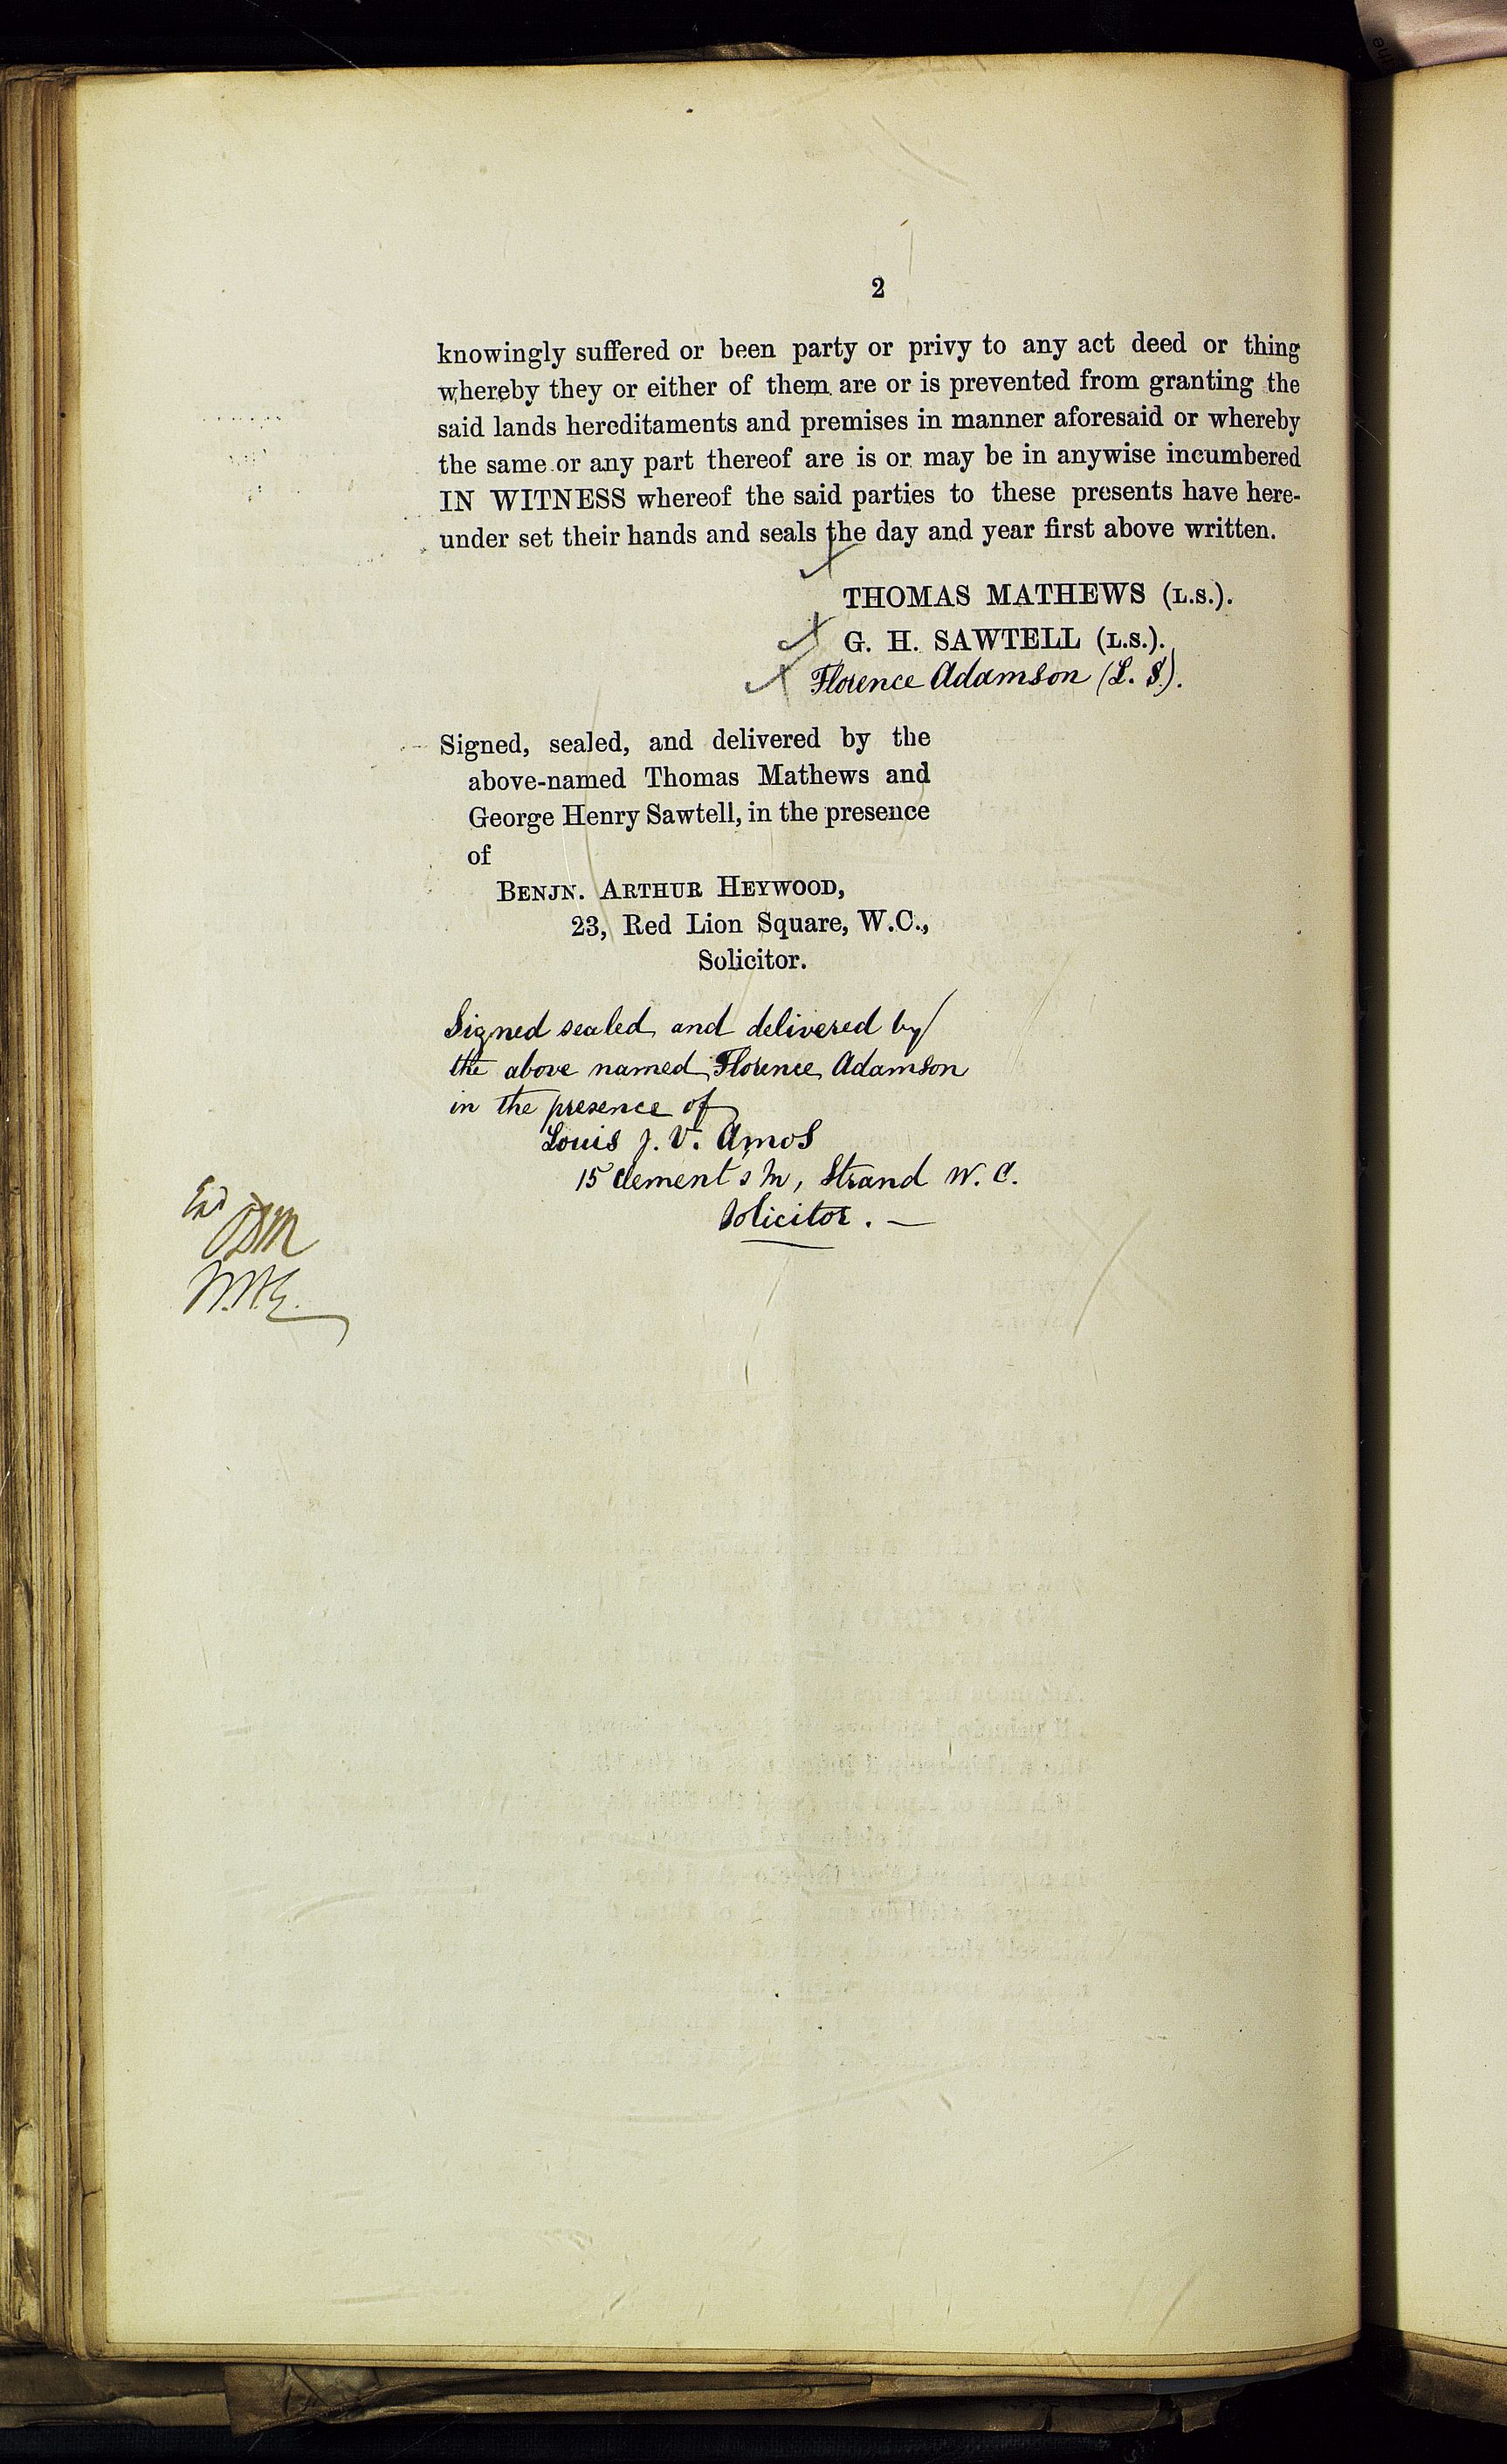 2
knowingly suffered or been party or privy to any act deed or thing
whereby they or either of them are or is prevented from granting the
said lands hereditaments and premises in manner aforesaid or whereby
the same or any part thereof are is or may be in anywise incumbered
IN WITNESS whereof the said parties to these presents have here-
under set their hands and seals the day and year first above written.
THOMAS MATHEWS (L.S.).
G. H. SAWTELL (L.S.).
Florence Adamson (L. S.).
Signed, sealed, and delivered by the
above-named Thomas Mathews and
George Henry Sawtell, in the presence
of
BENJN. ARTHUR HEYWOOD,
23, Red Lion Square, W.C.,
Solicitor.
Signed sealed and delivered by
the above named Florence Adamson
in the presence of
Louis J. V. Amos
15 Clement's Inn, Strand W. C.
Solicitor. —